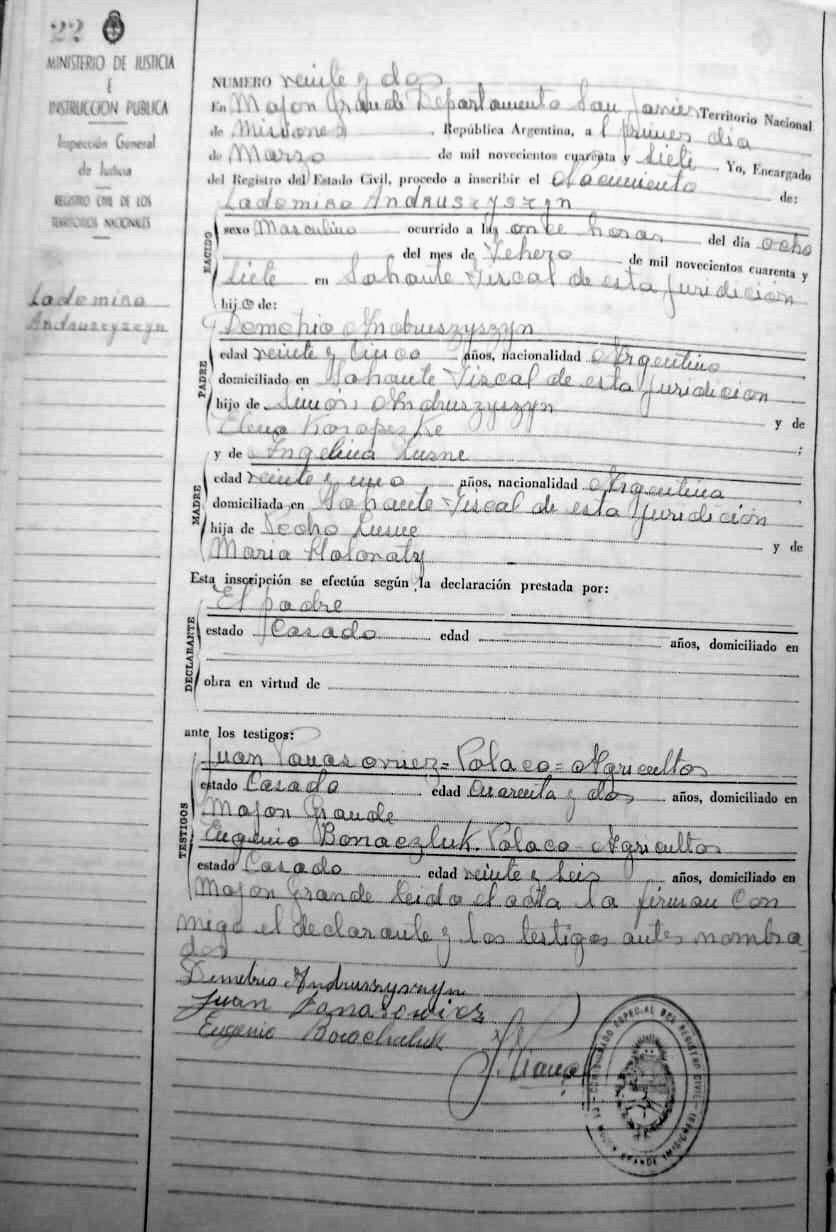 22
MINISTERIO DE JUSTICIA
E
INSTRUCCION PUBLICA
Inspección General
de Justicia
REGISTRO CIVIL DE LOS
TERRITORIOS NACIONALES
Ladomiro
Andruszyszyn
NUMERO veinte y dos
En Mojon Grande Departamento San Javier Territorio Nacional
de Misiones, República Argentina, a l primer día
de Marzo de mil novecientos cuarenta y siete. Yo, Encargado
del Registro del Estado Civil, procedo a inscribir el Nacimiento de:
Ladomiro Andruszyszyn
NACIDO
sexo Masculino ocurrido a las once horas del día ocho
del mes de Febero de mil novecientos cuarenta y
siete en Sohaute Fiscal de esta juridición
hijo de:
PADRE
Demetrio Andruszyszyn
edad veinte y cinco años, nacionalidad Argentino
domiciliado en Sohaute Fiscal de esta juridicion
hijo de Simón Andruszyszyn y de
Elena ;
MADRE
y de Angelina Lusne
edad veinte y uno años, nacionalidad Argentina
domiciliada en Sohaute Fiscal de esta juridición
hija de Lusne y de
Maria
Esta inscripción se efectúa según la declaración prestada por:
DECLARANTE
El padre
estado Casado edad años, domiciliado en
obra en virtud de
ante los testigos:
TESTIGOS
Juan Panasowiez = Polaco = Agricultor
estado Casado edad cuarenta y dos años, domiciliado en
Mojon Grande
Eugenio Bonaczluk. Polaco - Agricultor
estado Casado edad veinte y seis años, domiciliado en
Mojon Grande leido el acta la firman con
migo el declarante y los testigos antes nombra
dos
Demetrio Andruszyszyn
Juan Panasowiez
Eugenio
REGISTRO CIVIL
MOJON GRANDE (MISIONES)